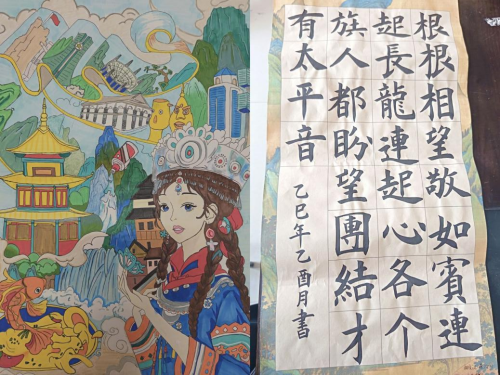 根根相望敬如賓連
起長龍連起心各个
族人都盼望團結才
有太平音
乙巳年乙酉月書